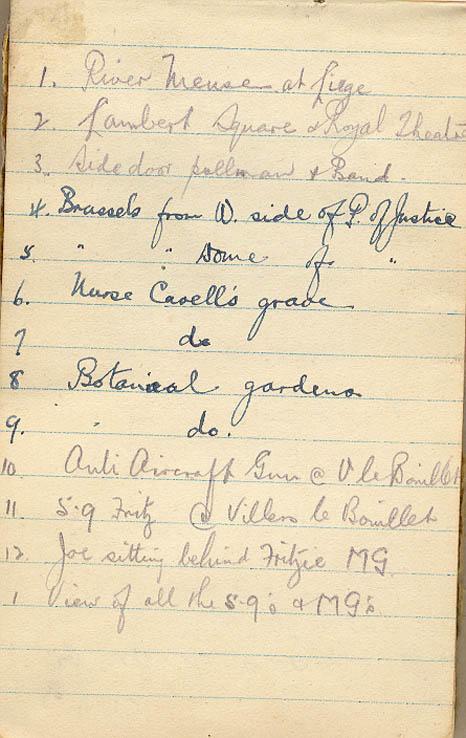 1. River Meuse at Liege
2. Lambert Square & Royal Theatre
3. Side door pullman & Band.
4. Brussels from W. side of P. of Justice
5. " " Dome of "
6. Nurse Cavell's grave
7 do
8 Botanical gardens
9. " do.
10 Anti Aircraft Gun @ V le Bouillet
11 5.9 Fritz @ Villers le Bouillet
12. Joe sitting behind Fritzie MG
1 View of all the 5.9's & MG's